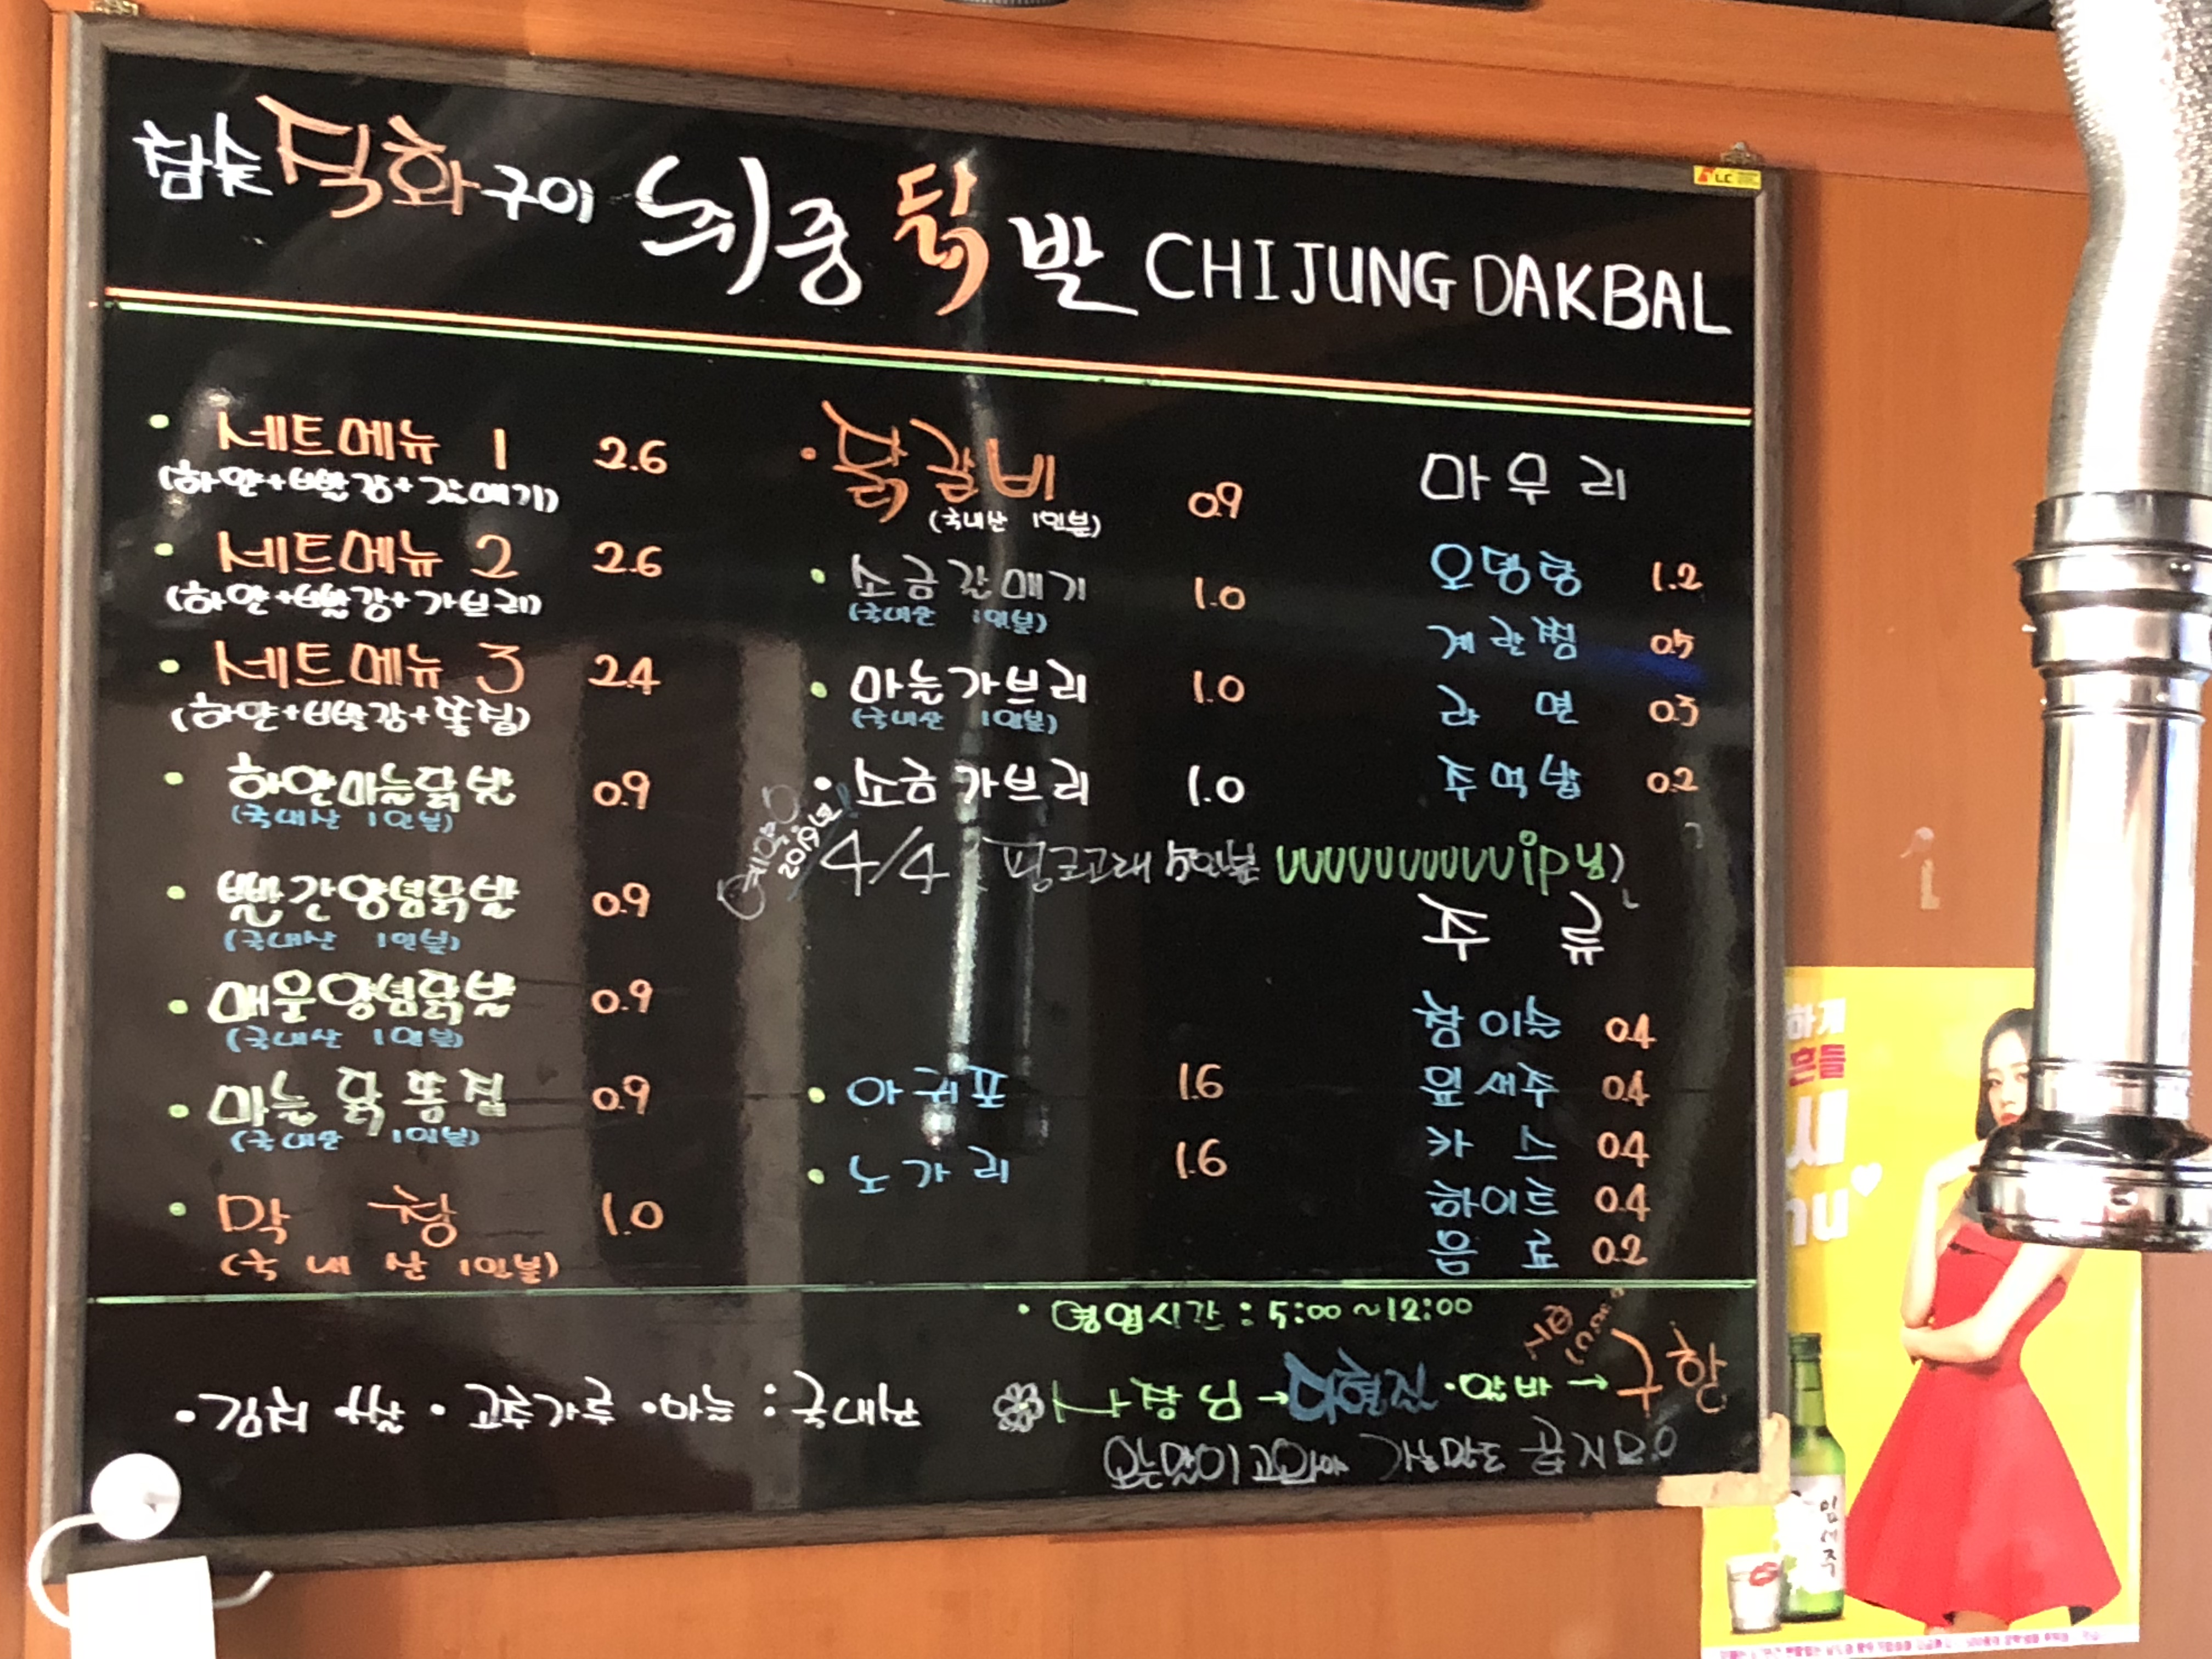 참숯 직화구이 취중닭발 CHIJUNG DAKBAL
· 세트메뉴 1 2.6
(하얀+빨강+갈매기)
· 세트메뉴 2 2.6
(하얀+빨강+가브리)
· 세트메뉴 3 2.4
(하얀+빨강+똥집)
· 하얀마늘닭발 0.9
(국내산 1인분)
· 빨간양념닭발 0.9
(국내산 1인분)
· 매운양념닭발 0.9
(국내산 1인분)
· 마늘닭똥집 0.9
(국내산 1인분)
· 막창 1.0
(국내산 1인분)
· 닭갈비 0.9
(국내산 1인분)
· 소금갈매기 1.0
(국내산 1인분)
· 마늘가브리 1.0
(국내산 1인분)
· 소금가브리 1.0
2019년
4/4 핑크고래 5인분
· 아귀포 1.6
· 노가리 1.6
마무리
오뎅탕 1.2
계란찜 0.5
라면 0.3
주먹밥 0.2
주류
참이슬 0.4
잎새주 0.4
카스 0.4
하이트 0.4
음료 0.2
· 영업시간 : 5:00~12:00
· 김치 쌀 · 고춧가루 · 마늘 : 국내산
사장님→ · 알바→구함
오는말이 고와야 가는말도 곱지요
LC
하게
흔들
잎새주